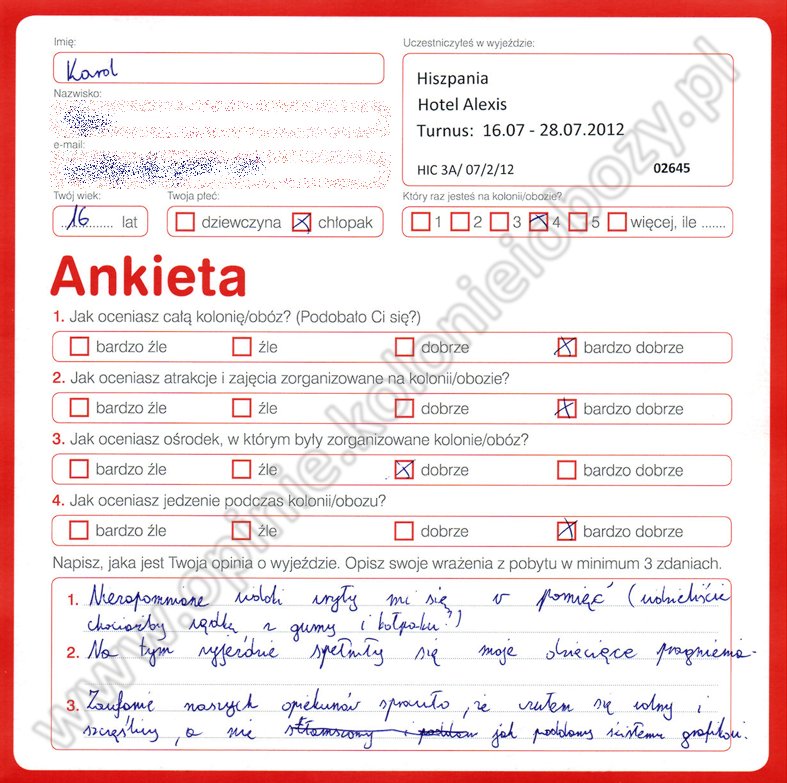 Imię:
Karol
Nazwisko:
e-mail:
Twój wiek:
16 lat
Twoja płeć:
dziewczyna chłopak
Uczestniczyłeś w wyjeździe:
Hiszpania
Hotel Alexis
Turnus: 16.07 - 28.07.2012
HIC 3A/ 07/2/12 02645
Który raz jesteś na kolonii/obozie?
1 2 3 4 5 więcej, ile .......
Ankieta
1. Jak oceniasz całą kolonię/obóz? (Podobało Ci się?)
bardzo źle źle dobrze bardzo dobrze
2. Jak oceniasz atrakcje i zajęcia zorganizowane na kolonii/obozie?
bardzo źle źle dobrze bardzo dobrze
3. Jak oceniasz ośrodek, w którym były zorganizowane kolonie/obóz?
bardzo źle źle dobrze bardzo dobrze
4. Jak oceniasz jedzenie podczas kolonii/obozu?
bardzo źle źle dobrze bardzo dobrze
Napisz, jaka jest Twoja opinia o wyjeździe. Opisz swoje wrażenia z pobytu w minimum 3 zdaniach.
1. Niezapomniane widoki wryły mi się w pamięć (widzieliście
chociażby z gumy i kołpaku?)
2. Na tym wyjeździe spełniły się moje dziecięce pragnienia.
3. Zaufanie naszych opiekunów sprawiło, że czułem się wolny i
szczęśliwy, a nie stłamszony i poddan jak poddany ścisłemu grafikowi.
www.opinie.kolonieiobozy.pl